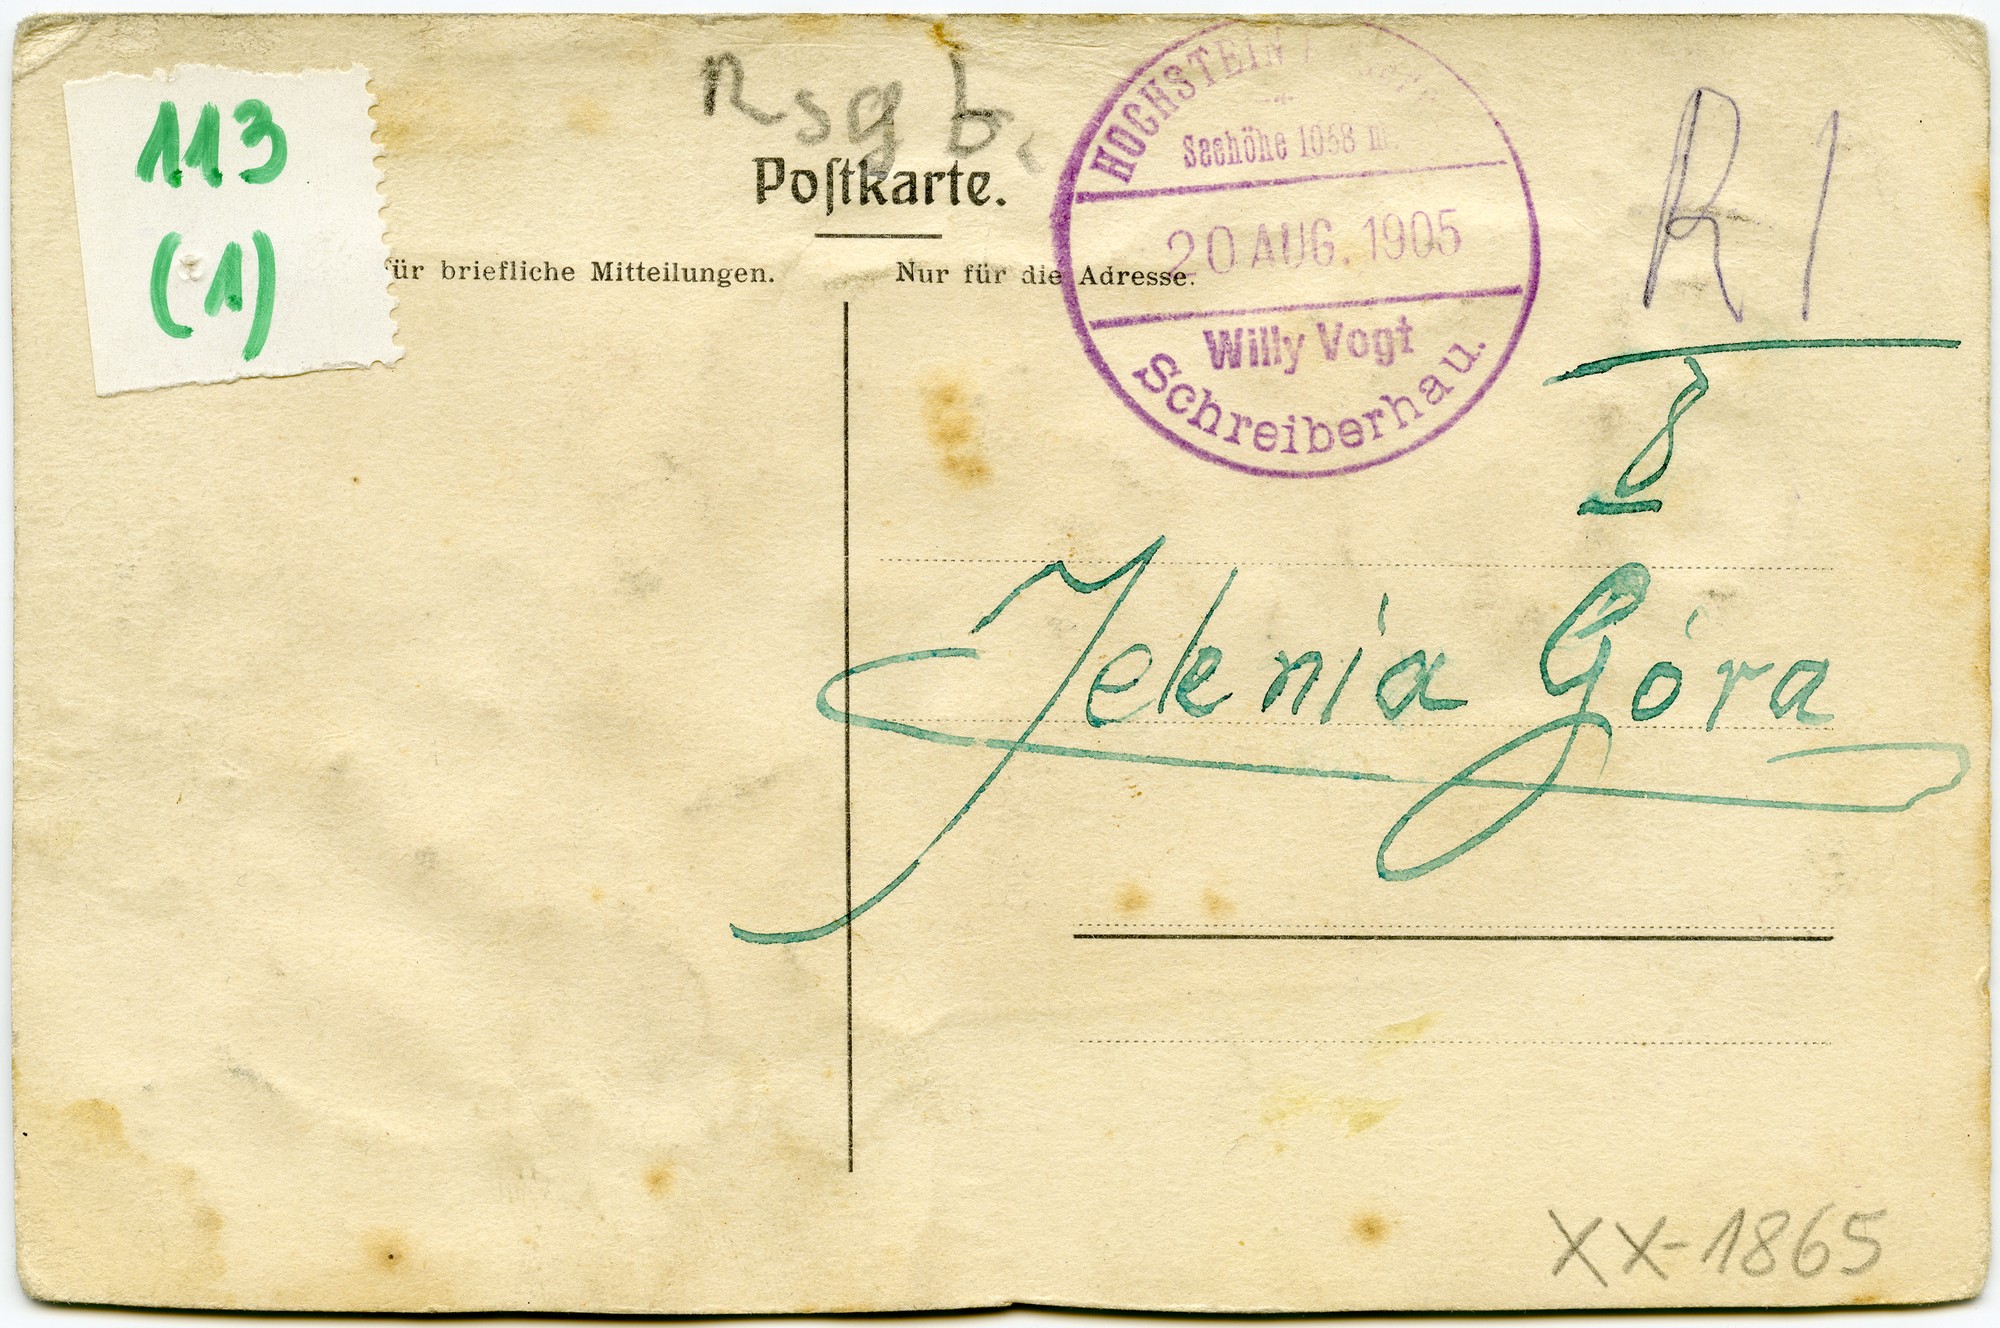 113
(1)
Rsgb.
Postkarte.
für briefliche Mitteilungen.
Nur für die Adresse.
HOCHSTEIN
Seehöhe 1058 m.
20 AUG. 1905
Willy Vogt
Schreiberhau.
R I
8
Jelenia Góra
XX-1865